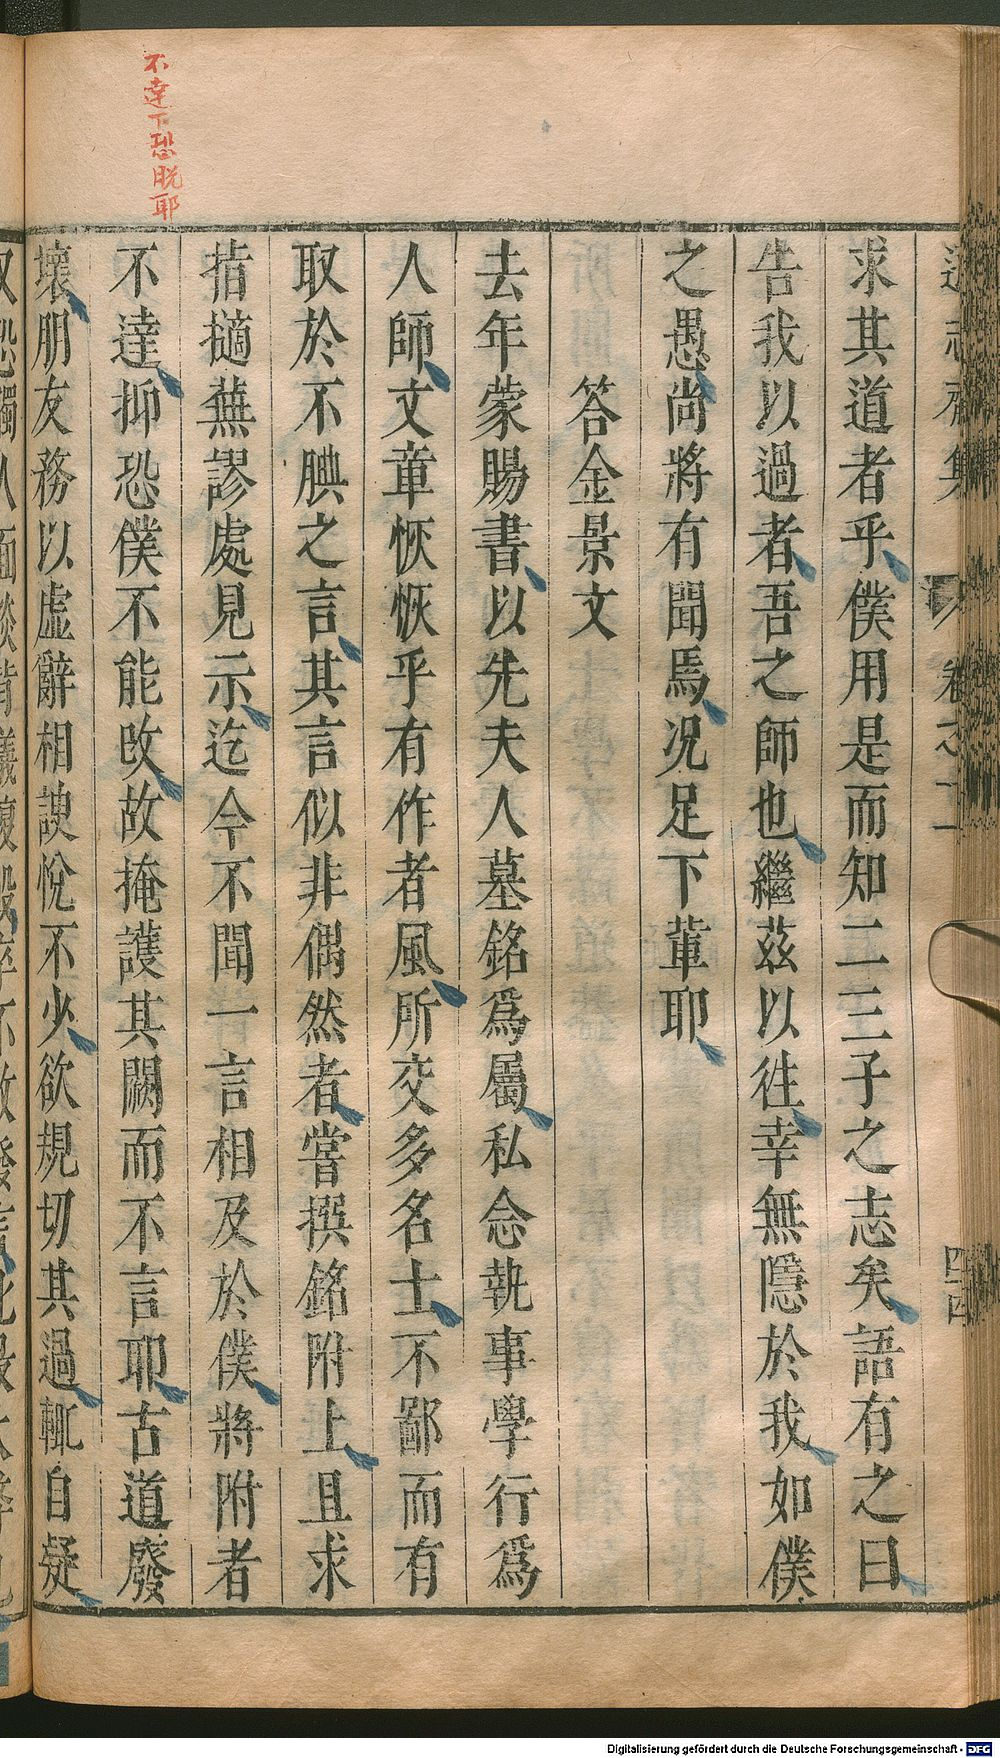 不達下恐脫耶
求其道者乎僕用是而知二三子之志矣語有之曰
告我以過者吾之師也繼茲以往幸無隱於我如僕
之愚尚將有聞焉况足下輩耶
答金景文
去年蒙賜書以先夫人墓銘爲屬私念執事學行爲
人師文章恢恢乎有作者風所交多名士不鄙而有
取於不腆之言其言似非偶然者嘗撰銘附上且求
指擿蕪謬處見示迄今不聞一言相及於僕將附者
不達抑恐僕不能改故掩護其闕而不言耶古道廢
壞朋友務以虛辭相諛悅不少欲規切其過輒自疑
Digitalisierung gefördert durch die Deutsche Forschungsgemeinschaft - DFG